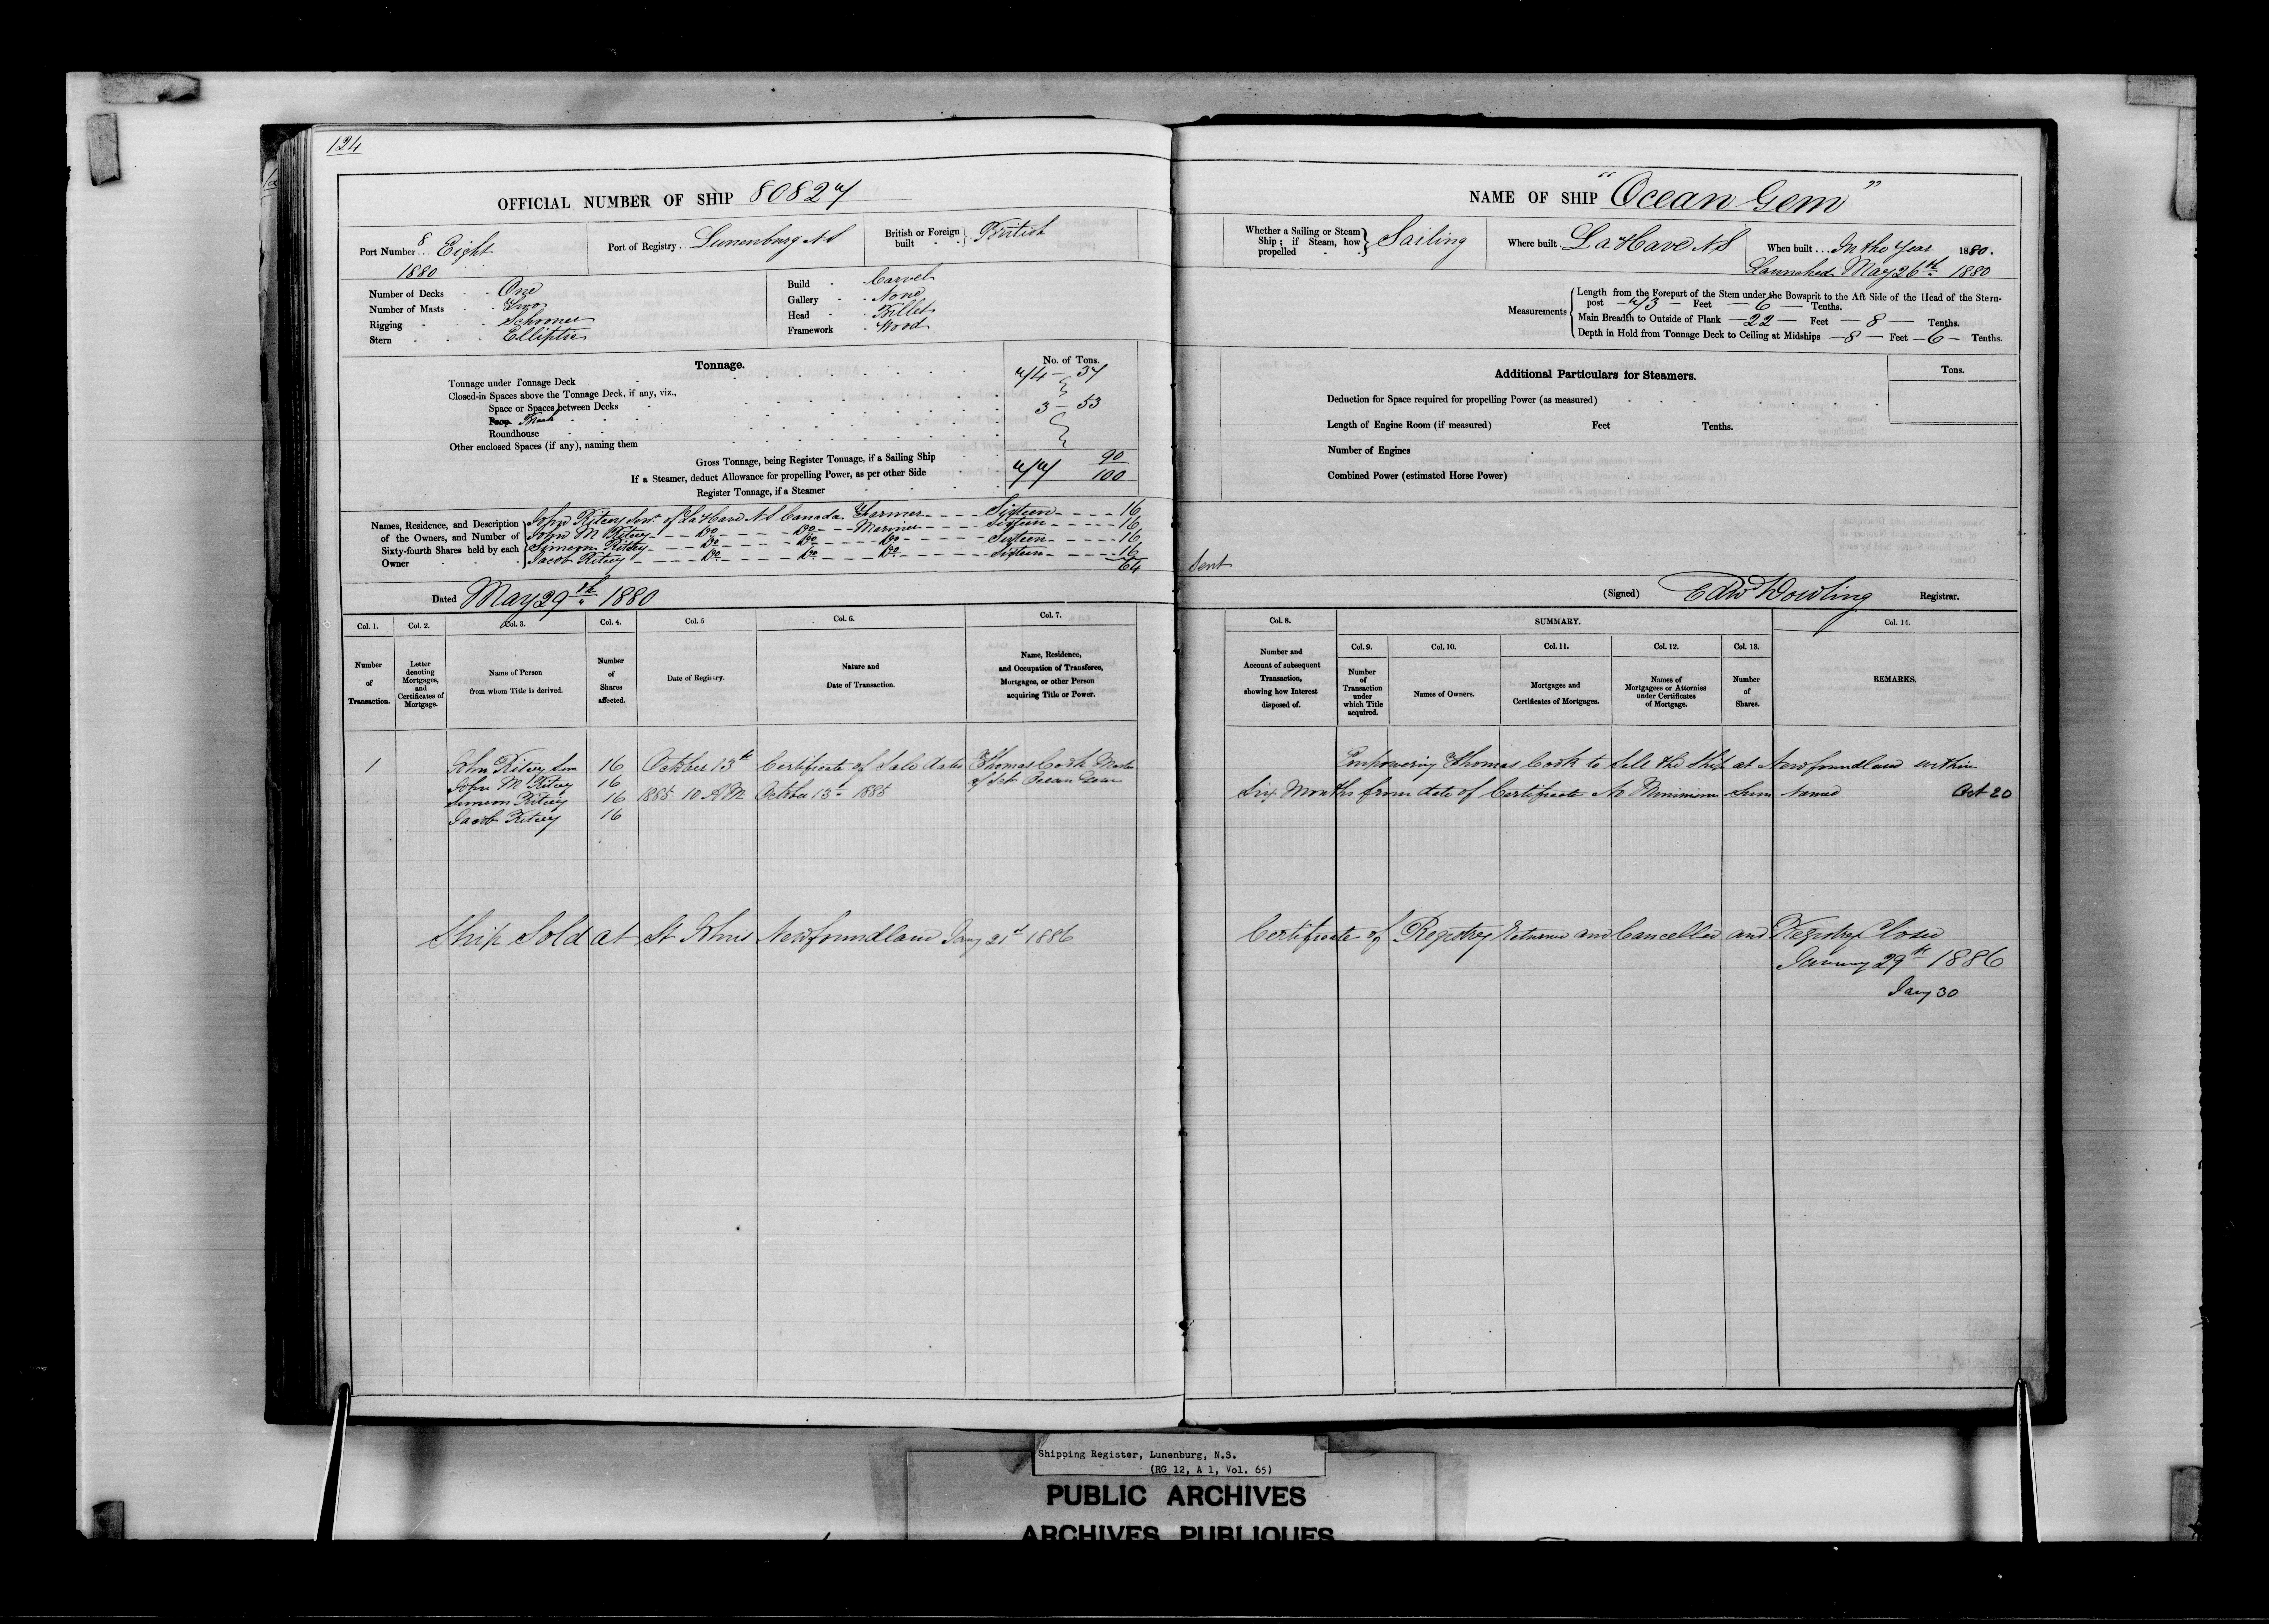 124
OFFICIAL NUMBER OF SHIP 80827
Port Number 8 Eight 1880
Port of Registry Lunenburg N S
British or Foreign built British
Number of Decks One
Number of Masts Two
Rigging Schooner
Stern Elliptic
Build Carvel
Gallery None
Head Billet
Framework Wood
Tonnage.
No. of Tons.
Tonnage under Tonnage Deck 74 - 37
Closed-in Spaces above the Tonnage Deck, if any, viz.,
Space or Spaces between Decks
3 - 53
Roundhouse
Other enclosed Spaces (if any), naming them
Gross Tonnage, being Register Tonnage, if a Sailing Ship 77 90/100
If a Steamer, deduct Allowance for propelling Power, as per other Side
Register Tonnage, if a Steamer
Names, Residence, and Description of the Owners, and Number of Sixty-fourth Shares held by each Owner
John Ritcey Senr. of LaHave N S Canada Farmer Sixteen 16
John M Ritcey Do Do Mariner Sixteen 16
Simeon Ritcey Do Do Do Sixteen 16
Jacob Ritcey Do Do Do Sixteen 16
64
Dated May 29th 1880
Col. 1. Col. 2. Col. 3. Col. 4. Col. 5 Col. 6. Col. 7.
Number of Transaction.
Letter denoting Mortgages, and Certificates of Mortgage.
Name of Person from whom Title is derived.
Number of Shares affected.
Date of Registry.
Nature and Date of Transaction.
Name, Residence, and Occupation of Transferee, Mortgagee, or other Person acquiring Title or Power.
1 John Ritcey Sen 16 October 13th Certificate of Sale dated Thomas Cook Master
John M Ritcey 16 of Sch Ocean Gem
Simeon Ritcey 16 1885 10 A M October 13th 1885
Jacob Ritcey 16
Ship Sold at St Johns Newfoundland Jany 21st 1886
NAME OF SHIP "Ocean Gem"
Whether a Sailing or Steam Ship; if Steam, how propelled Sailing
Where built LaHave N S
When built In the Year 1880.
Launched May 26th 1880
Measurements
Length from the Forepart of the Stem under the Bowsprit to the Aft Side of the Head of the Stern-
post 73 Feet 6 Tenths.
Main Breadth to Outside of Plank 22 Feet 8 Tenths.
Depth in Hold from Tonnage Deck to Ceiling at Midships 8 Feet 6 Tenths.
Additional Particulars for Steamers.
Tons.
Deduction for Space required for propelling Power (as measured)
Length of Engine Room (if measured) Feet Tenths.
Number of Engines
Combined Power (estimated Horse Power)
Sent
(Signed) Edw Dowling Registrar.
Col. 8. SUMMARY. Col. 14.
Col. 9. Col. 10. Col. 11. Col. 12. Col. 13.
Number and Account of subsequent Transaction, showing how Interest disposed of.
Number of Transaction under which Title acquired.
Names of Owners.
Mortgages and Certificates of Mortgages.
Names of Mortgagees or Attornies under Certificates of Mortgage.
Number of Shares.
REMARKS.
Empowering Thomas Cook to Sell the Ship at Newfoundland within
Six Months from date of Certificate No Minimum Sum Named Oct 20
Certificate of Registry Returned and Cancelled and Registry Closed
January 29th 1886
Jany 30
Shipping Register, Lunenburg, N.S.
(RG 12, A 1, Vol. 65)
PUBLIC ARCHIVES
ARCHIVES PUBLIQUES